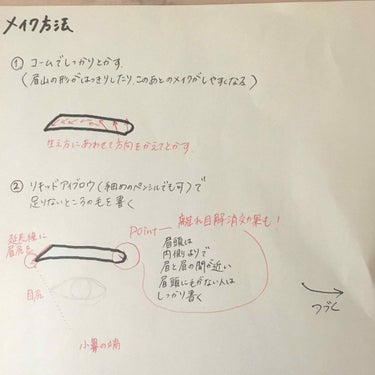 メイク方法
① コームでしっかりとかす.
(眉山の形がはっきりしたり、このあとのメイクがしやすくなる)
生え方にあわせて方向をかえてとかす.
② リキッドアイブロウ(細めのペンシルでも可)で
足りないところの毛を書く
Point — 離れ目解消効果も!
延長線に
眉尻を
眉頭は
内側よりで
眉と眉の間が近い
眉頭に毛がない人は
しっかり書く
目尻
小鼻の端
つづく